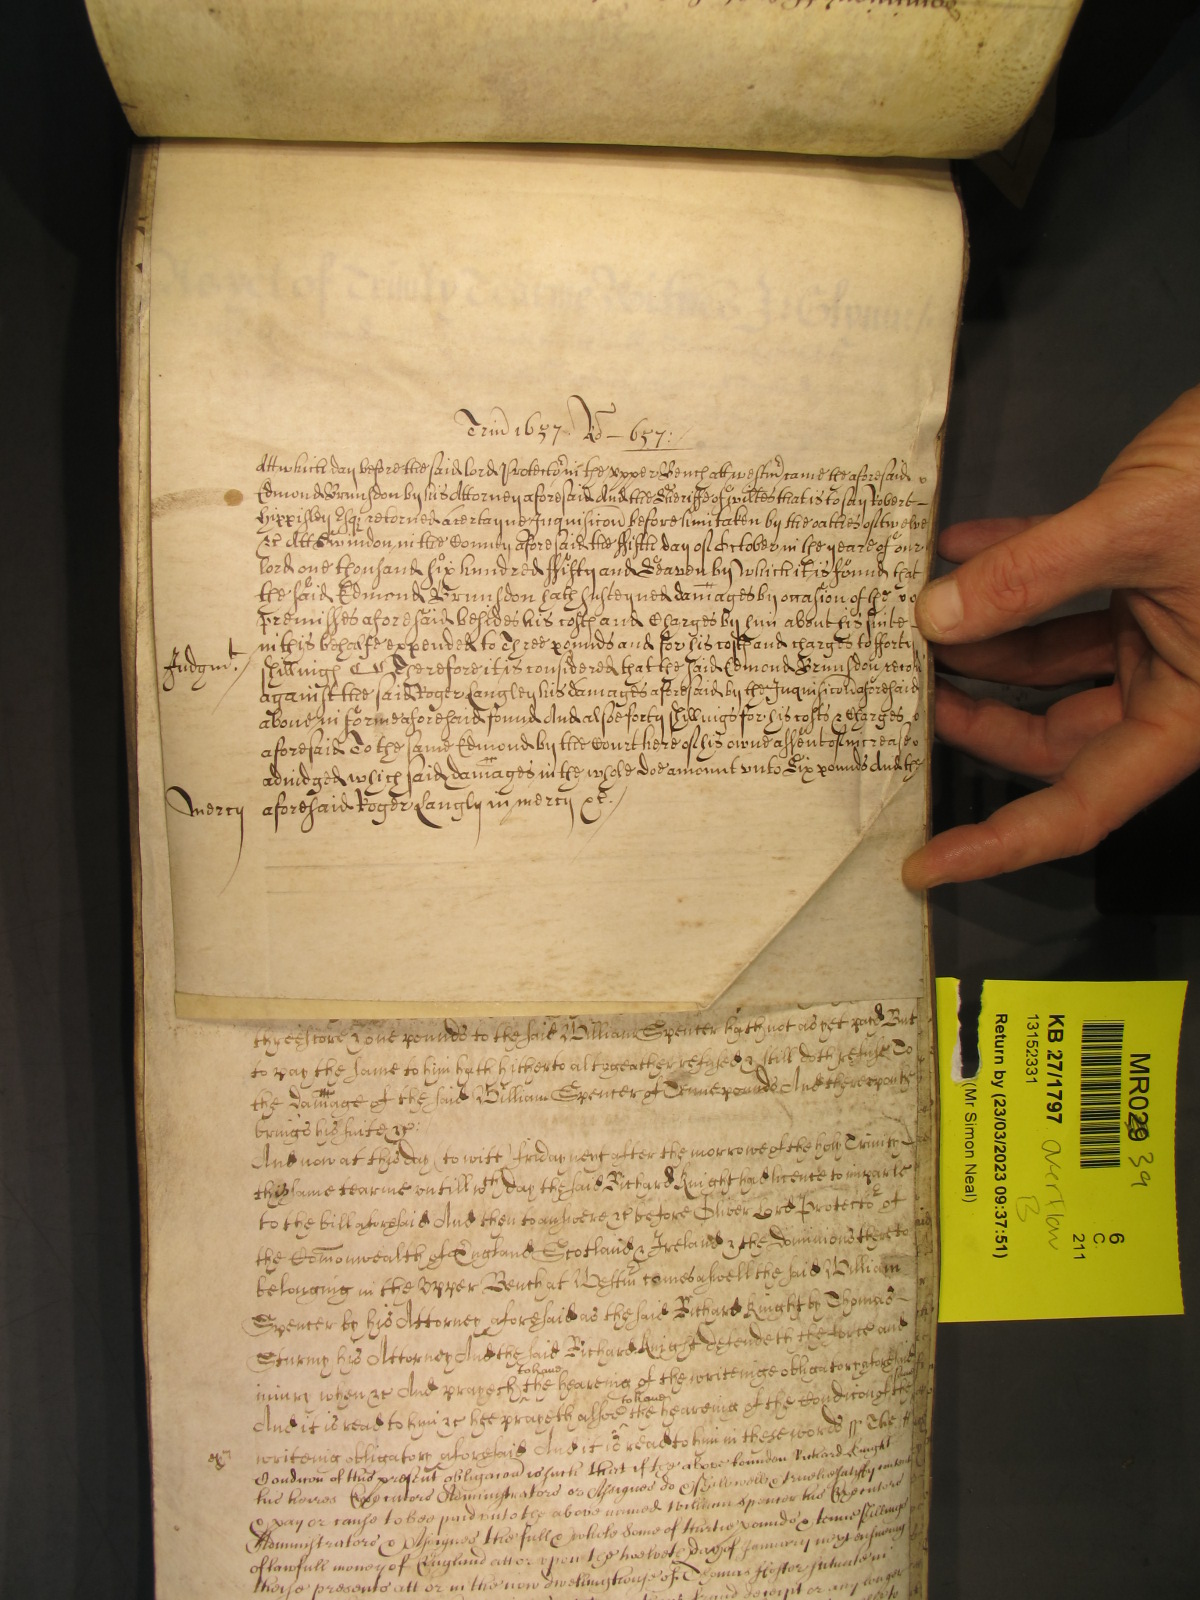 Trin 1657 Ro – 657:
Att which day before the said lord Protector in the vpper Bench att westmr came the aforesaid
Edmond Brunsdon by his Attorney aforesaid And the Sheriffe of wiltes that is to say Robert
Hippisley Esqr retorned a certayne Inquisicon before him taken by the oathes of twelve
&c Att Swindon in the County aforesaid the ffifth day of October in the yeare of our
lord one thousand six hundred ffifty and Seaven by which it is found that
the said Edmond Brunsdon hath susteyned damages by occasion of the
premisses aforesaid besides his costs and Charges by him about his suite
in this behalfe expended to Three pounds and for his costs and charges to fforty
Judgmt. shillings Therefore it is considered that the said Edmond Brunsdon recov
against the said Roger Langley his damages aforesaid by the Inquisicon aforesaid
above in forme aforesaid found And alsoe forty shillings for his costs & Charges
aforesaid To the same Edmond by the Court here of his owne assent of increase
adiudged which said damages in the whole doe amount vnto Six pounds And the
Mercy aforesaid Roger Langly in mercy &c.
threescore & one pounds to the said William Spencer hath not as yet payd But
to pay the same to him hath hitherto altogeather refused & still doth refuse To
the damage of the said William Spencer of Tenne pounds And thereuponn
brings his suite &c:
And now at this day to witt friday next after the morrowe of the holy Trinity
this same tearme untill wch day the said Richard Knight had licence to imparle
to the bill aforesaid And then to answere &c before Oliver Lord Protector of
the Comonwealth of England Scotland & Ireland & the dominions thereto
belonging in the Vpper Bench at Westmr comes aswell the said William
Spencer by his Attorney aforesaid as the said Richard Knight by Thomas
Sturmy his Attorney And the said Richard Knight defendeth the force and
iniury when &c And prayeth to have the heareing of the writeinge obligatory aforesaid
And it is read to him &c hee prayeth alsoe to have the heareing of the Condicon of the
writeing obligatory aforesaid And it is read to him in these words ss The
Condicon of this present obligacon is such that if the above bounden Richard Knight
his heires Executors Administrators or Assignes do well & trulie satisfy content
& pay or cause to bee paid unto the above named William Spencer his Executors
Administrators or Assignes the full & whole some of thirtie pounds & tenne shillings
of lawfull money of England att or upon the twelveth day of January next ensuing
theise presents att or in the now dwelling house of Thomas situate in
fraud deceipt or any longer
MR029 39
6
C.
211
KB 27/1797 overflow
B
13152331
Return by (23/03/2023 09:37:51)
(Mr Simon Neal)